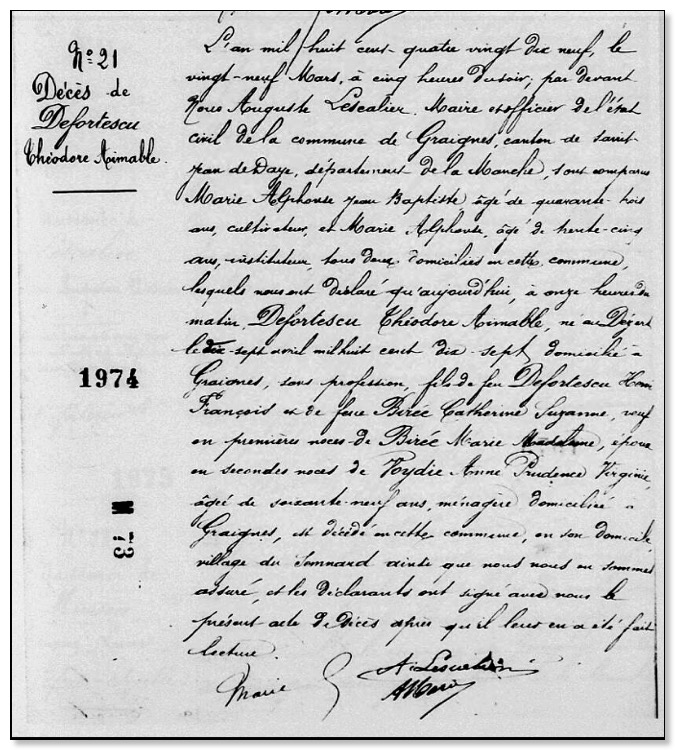 N° 21
Décès de
Defortescu
Théodore Aimable.
1974
M
73
L'an mil huit cent quatre vingt dix neuf, le
vingt-neuf Mars, à cinq heures du soir, par devant
Nous Auguste Lescalier, Maire et officier de l'état
civil de la commune de Graignes, canton de saint-
Jean de Daye, département de la Manche, sont comparus
Marie Alphonse Jean Baptiste âgé de quarante-trois
ans, cultivateur, et Marie Alphonse, âgé de trente-cinq
ans, instituteur, tous deux domiciliés en cette commune,
lesquels nous ont déclaré qu'aujourd'hui, à onze heures du
matin, Defortescu Théodore Aimable, né au Dézert
le dix-sept avril mil huit cent dix-sept, domicilié à
Graignes, sans profession, fils de feu Defortescu Henri
François et de feue Birée Catherine Suzanne, veuf
en premières noces de Birée Marie Madeleine, époux
en secondes noces de Voydie Anne Prudence Virginie,
âgée de soixante-neuf ans, ménagère domiciliée à
Graignes, est décédé en cette commune, en son domicile,
village du ainsi que nous nous en sommes
assuré, et les déclarants ont signé avec nous le
présent acte de décès après qu'il leur en a été fait
lecture.
Marie A Lescalier
AMarie